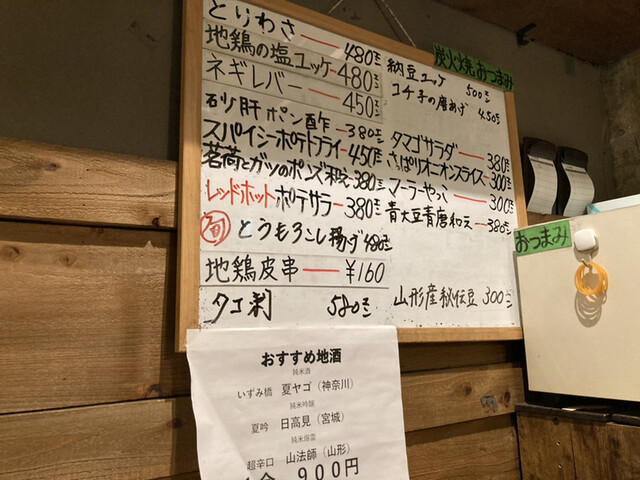 とりわさ 480円
地鶏の塩ユッケ 480円
ネギレバー 450円
砂肝ポン酢 380円
スパイシーポテトフライ 450円
茗荷とガツのポン酢和え 380円
レッドホットポテサラ 380円
旬 とうもろこし揚げ 480円
地鶏皮串 ¥160
タコ刺 580円
炭火焼 おつまみ
納豆ユッケ 500円
コチ子の唐あげ 450円
タマゴサラダー 380円
さっぱりオニオンスライス 300円
マーラーやっこ 300円
青大豆青唐和え 380円
山形産秘伝豆 300円
おつまみ
おすすめ地酒
純米酒
いずみ橋 夏ヤゴ(神奈川)
純米吟醸
夏吟 日高見(宮城)
超辛口 山法師(山形)
900円